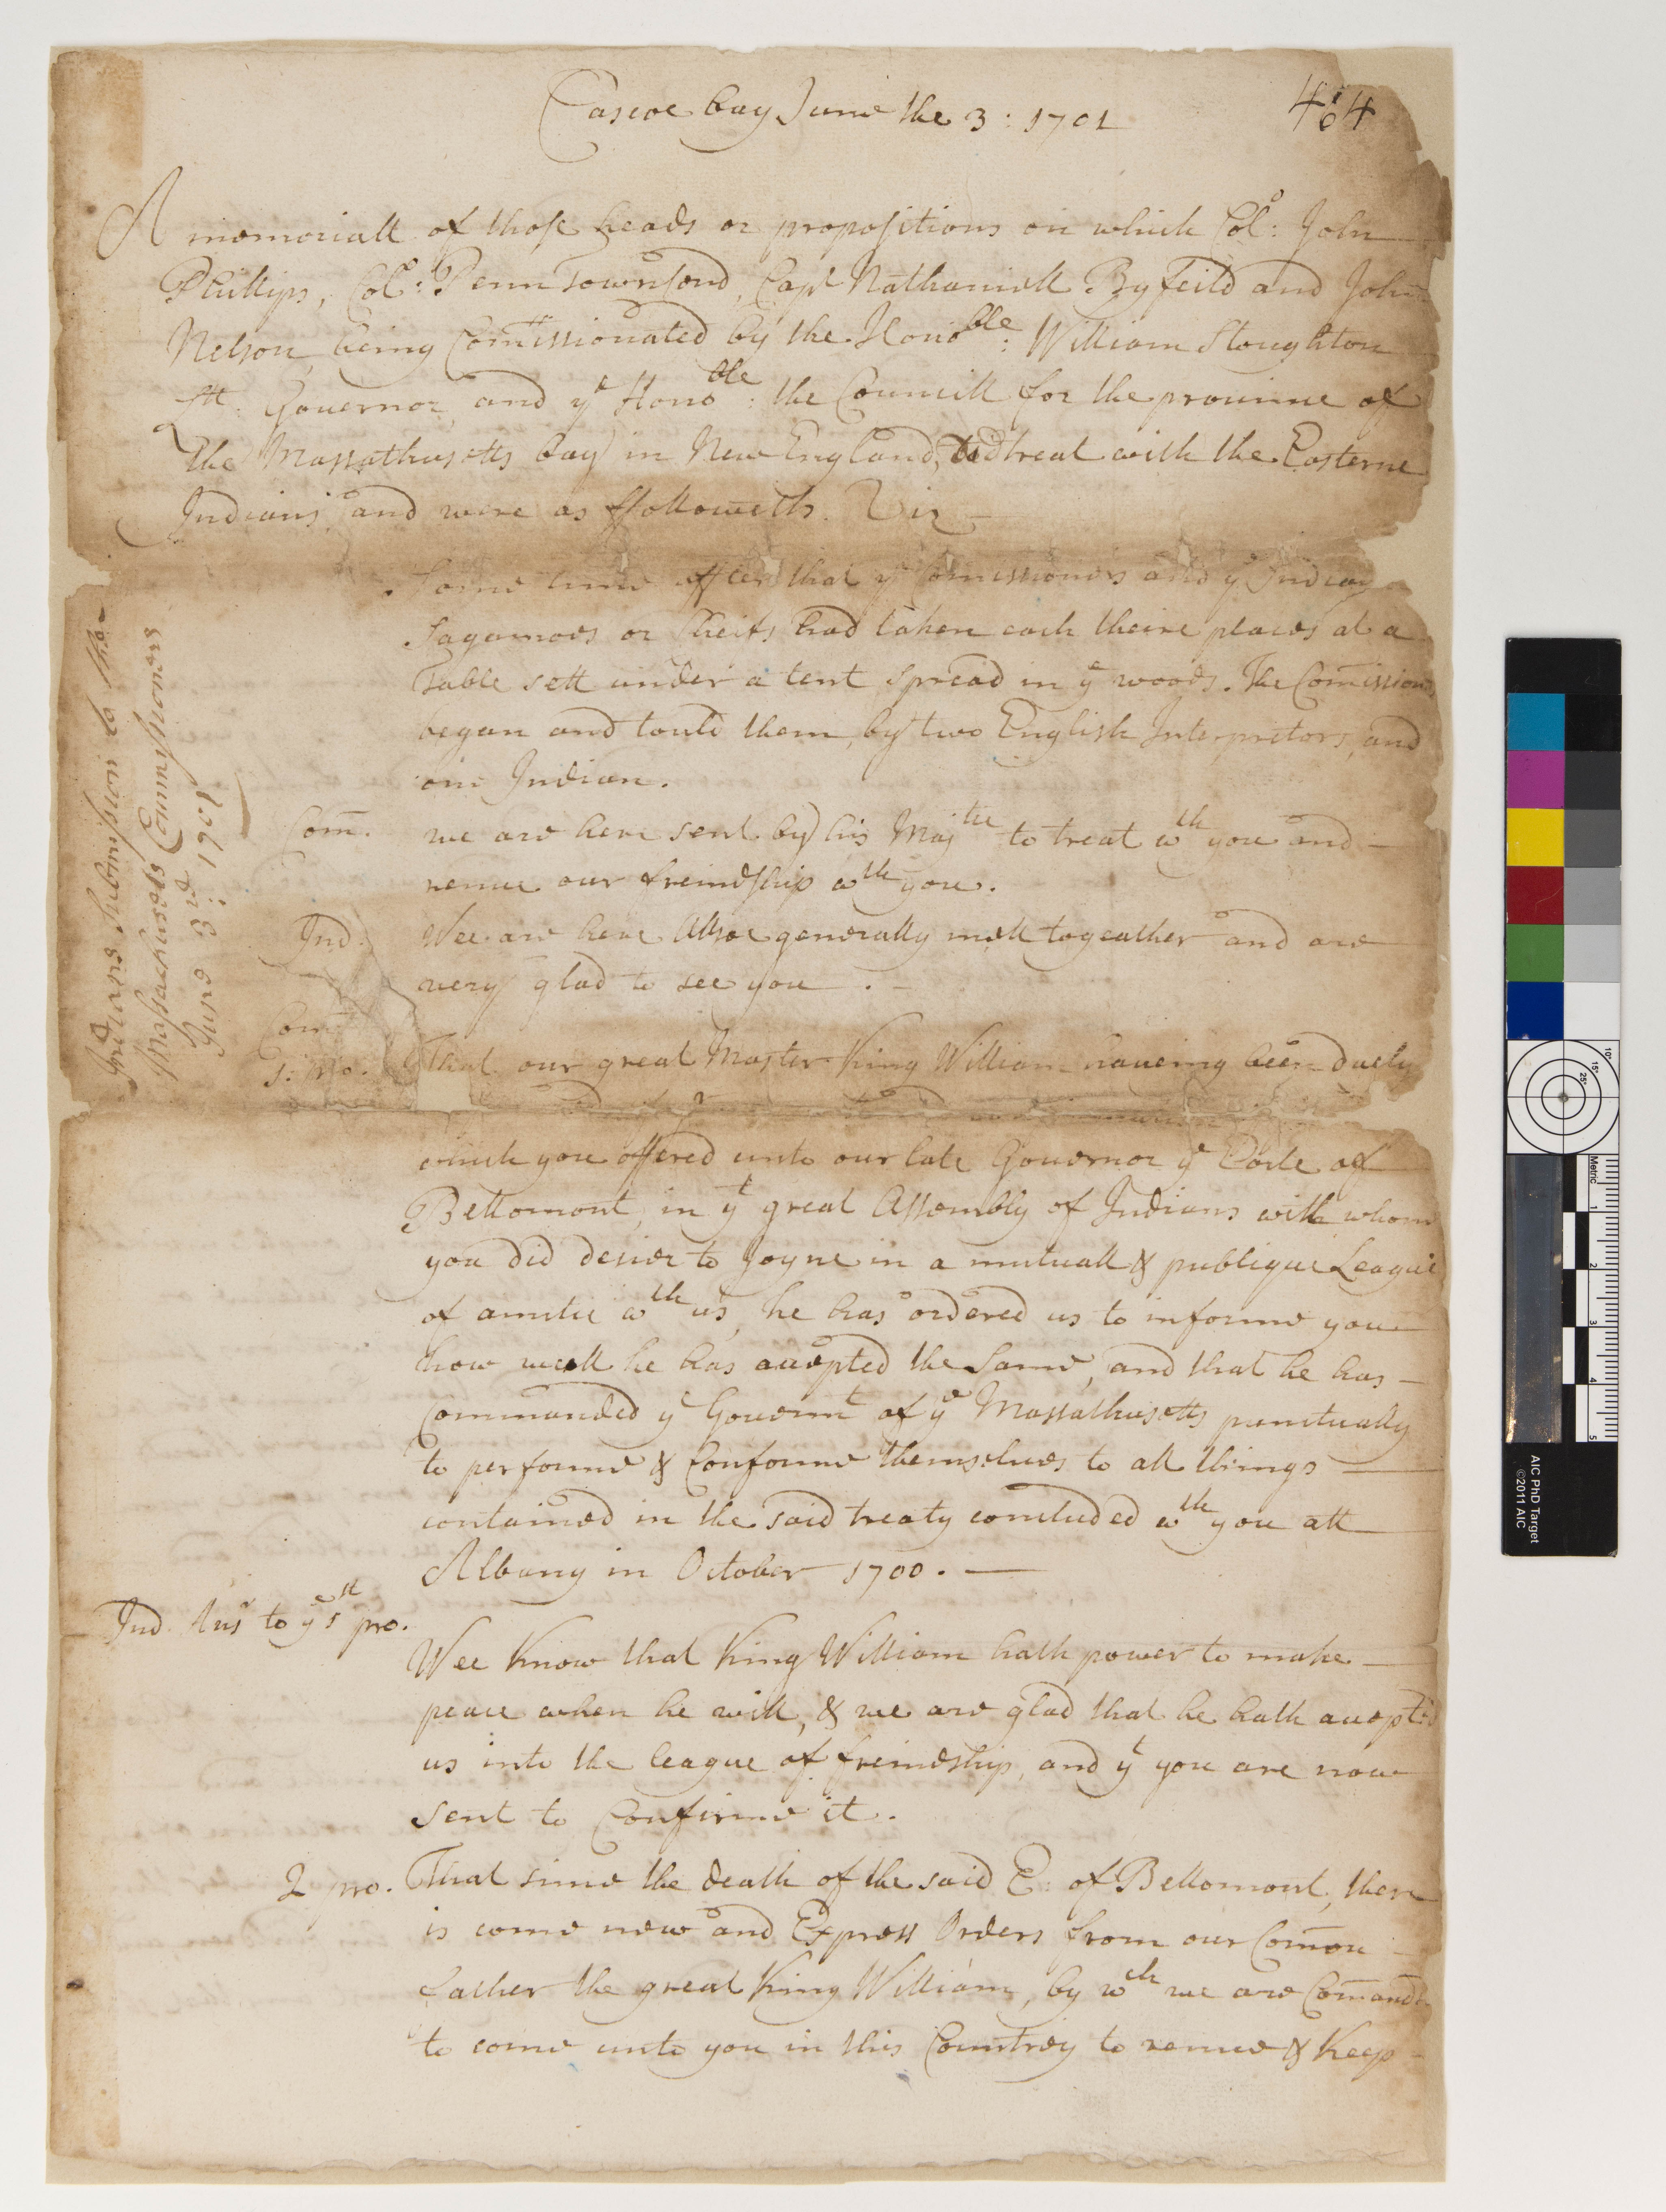 Cascoe bay June the 3: 1701
464
A memoriall of those heads or propositions on which Colo: John
Phillips, Colo: Penn Townsend, Capt Nathaniell Byfeild and John
Nelson, being Comissionated by the Honoble: William Stoughton
Lt: Governor and ye Honoble: the Councill for the province of
the Massathusetts bay in New England, did treat with the Easterne
Indians and were as ffolloweth. Viz
Some time after that ye Comissioners and ye Indian
Sagamoes or Cheifs had taken each theire places at a
Table sett under a tent spread in ye woods. The Comission
began and tould them, by two English Interpretors and
one Indian.
Com. we are here sent by his Majtie to treat wth you and
renue our freindship wth you.
Ind. Wee are here Allsoe generally mett togeather and are
very glad to see you.
Com
1. pro. That our great Master King William haveing been duely
which you offered unto our late Governor ye Earle of
Bellomont, in yt great Assembly of Indians with whom
you did desier to Joyne in a mutuall & publique League
of amitie wth us, he has ordered us to informe you
how well he has accepted the Same, and that he has
Commanded ye Governmt of ye Massathusetts punctually
to performe & Conforme themselves to all things
contained in the said treaty concluded wth you att
Albany in October 1700.
Ind. Ansr to ye 1st pro.
Wee Know that King William hath power to make
peace when he will, & we are glad that he hath accepted
us into the league of freindship, and yt you are now
sent to Confirme it.
2 pro. That since the death of the said E: of Bellomont, there
is come new and Express Orders from our Comon
Father the great King William, by wch we are Comand
to come unto you in this Countrey to renue & Keep
Indians Submission to the
Massachusets Commissioners
June 3rd: 1701